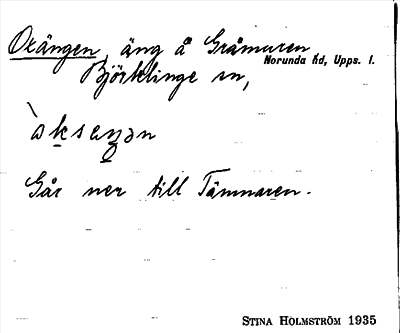 Oxängen, äng å Gråmuren,
Norunda hd, Upps. l.
Björklinge sn,
Går ner till Tämnaren.
STINA HOLMSTRÖM 1935